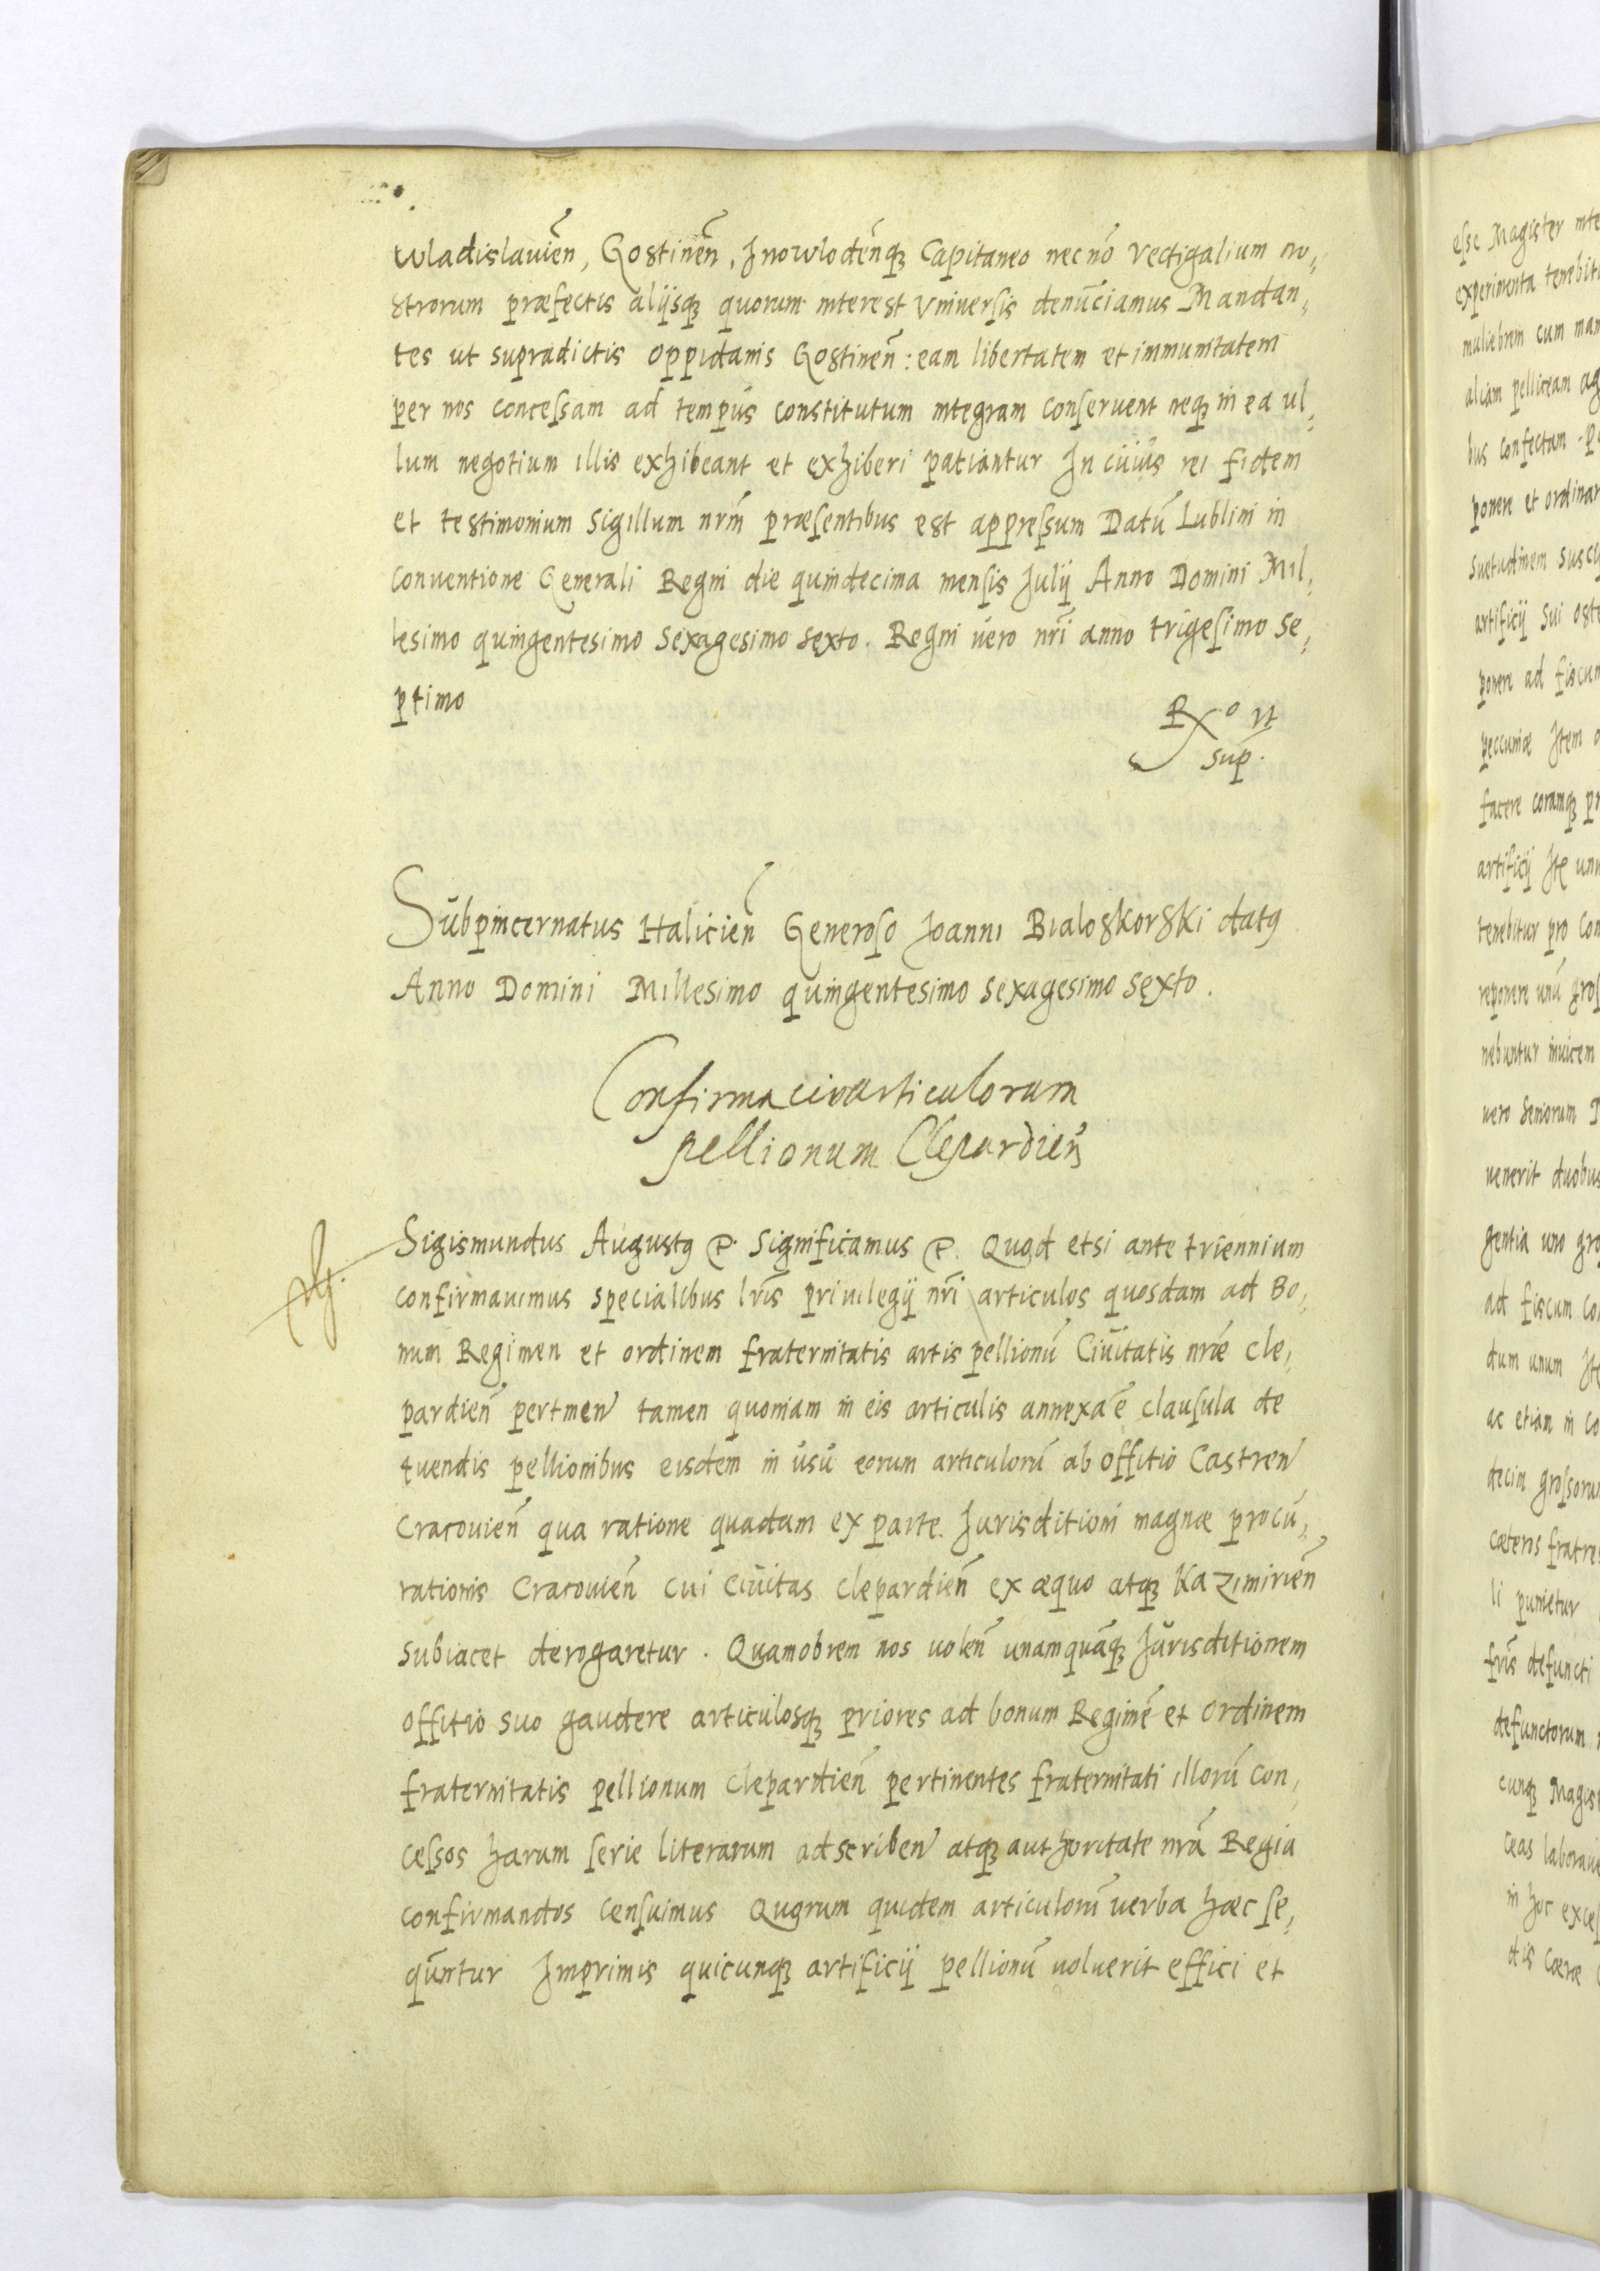 Wladislauien̄, Gostinen̄, Inowloden̄qꝫ Capitaneo necnō vectigalium no,
strorum præfectis alijsqꝫ quorum interest Vniuersis denūciamus Mandan,
tes ut supradictis oppidanis Gostinen̄: eam libertatem et immunitatem
per nos concessam ad tempus constitutum integram conseruent neqꝫ in ea ul,
lum negotium illis exhibeant et exhiberi patiantur In cuius rei fidem
et testimonium sigillum nr̄m præsentibus est appressum Datū Lublini in
conuentione Generali Regni die quindecima mensis Julij Anno Domini Mil,
lesimo quingentesimo sexagesimo sexto. Regni uero nr̄i anno trigesimo se,
ptimo
Rxᵒ vt
sup.
Subpincernatus Halicien̄ Generoso Joanni Bialoskorski datꝯ
Anno Domini Millesimo quingentesimo sexagesimo sexto.
Confirmacio articulorum
pellionum Clepardien̄
Sigismundus Augustꝯ &. Significamus &. Quod etsi ante triennium
confirmauimus specialibus lr̄is priuilegij nr̄i articulos quosdam ad Bo,
num Regimen et ordinem fraternitatis artis pellionū Ciuitatis nr̄æ Cle,
pardien̄ pertinen̄ tamen quoniam in eis articulis annexa ē clausula de
tuendis pellionibus eisdem in usu eorum articulorū ab offitio Castren̄
Cracouien̄ qua ratione quadam ex parte Jurisditioni magnæ procu,
rationis Cracouien̄ cui Ciuitas Clepardien̄ ex æquo atqꝫ Kazimirien̄
subiacet derogaretur. Quamobrem nos uolen̄ unamquāqꝫ Jurisditionem
offitio suo gaudere articulosqꝫ priores ad bonum Regimē et ordinem
fraternitatis pellionum Clepardien̄ pertinentes fraternitati illorū con,
cessos harum serie literarum adscriben̄ atqꝫ authoritate nr̄a Regia
confirmandos censuimus Quorum quidem articulorū uerba hæc se,
quntur Imprimis quicunqꝫ artificij pellionū uoluerit effici et
esse Magister
experimenta
cum
pelliceam
bus confectam
ponere et
artificij sui
ponere ad
pecuniæ Item
facere coramqꝫ
artificij
tenebitur pro
reponere unū
nebuntur inuicem
uero seniorum
uenerit duobus
gentia uno
ad fiscum
dum unum
ac etiam in
decim grossorum
cæteros fratres
li punietur
fr̄is defuncti
defunctorum
cunqꝫ
in hoc
dis